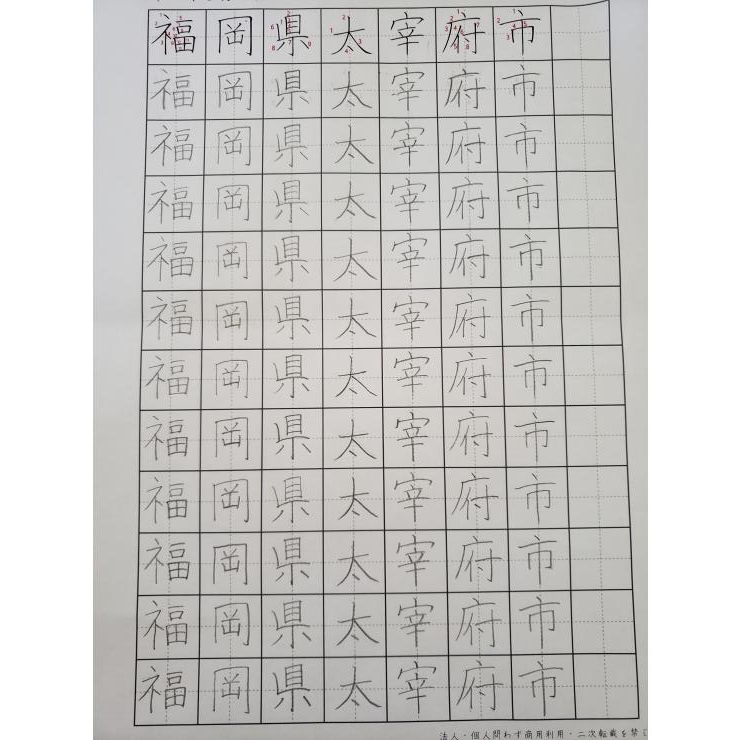 福岡県太宰府市
福岡県太宰府市
福岡県太宰府市
福岡県太宰府市
福岡県太宰府市
福岡県太宰府市
福岡県太宰府市
福岡県太宰府市
福岡県太宰府市
福岡県太宰府市
福岡県太宰府市
福岡県太宰府市
法人・個人問わず商用利用・二次転載を禁